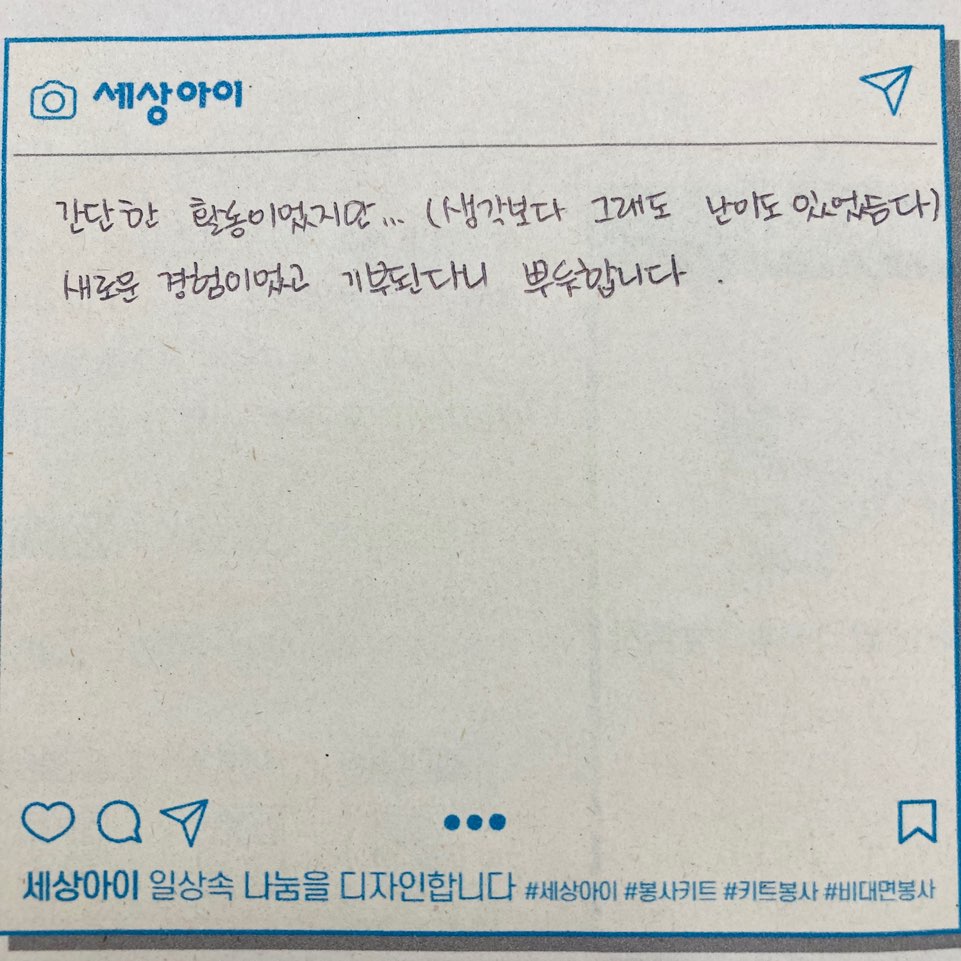 세상아이
간단한 활동이었지만... (생각보다 그래도 난이도 있었습다)
새로운 경험이었고 기부된다니 뿌듯합니다.
세상아이 일상속 나눔을 디자인합니다 #세상아이 #봉사키트 #키트봉사 #비대면봉사